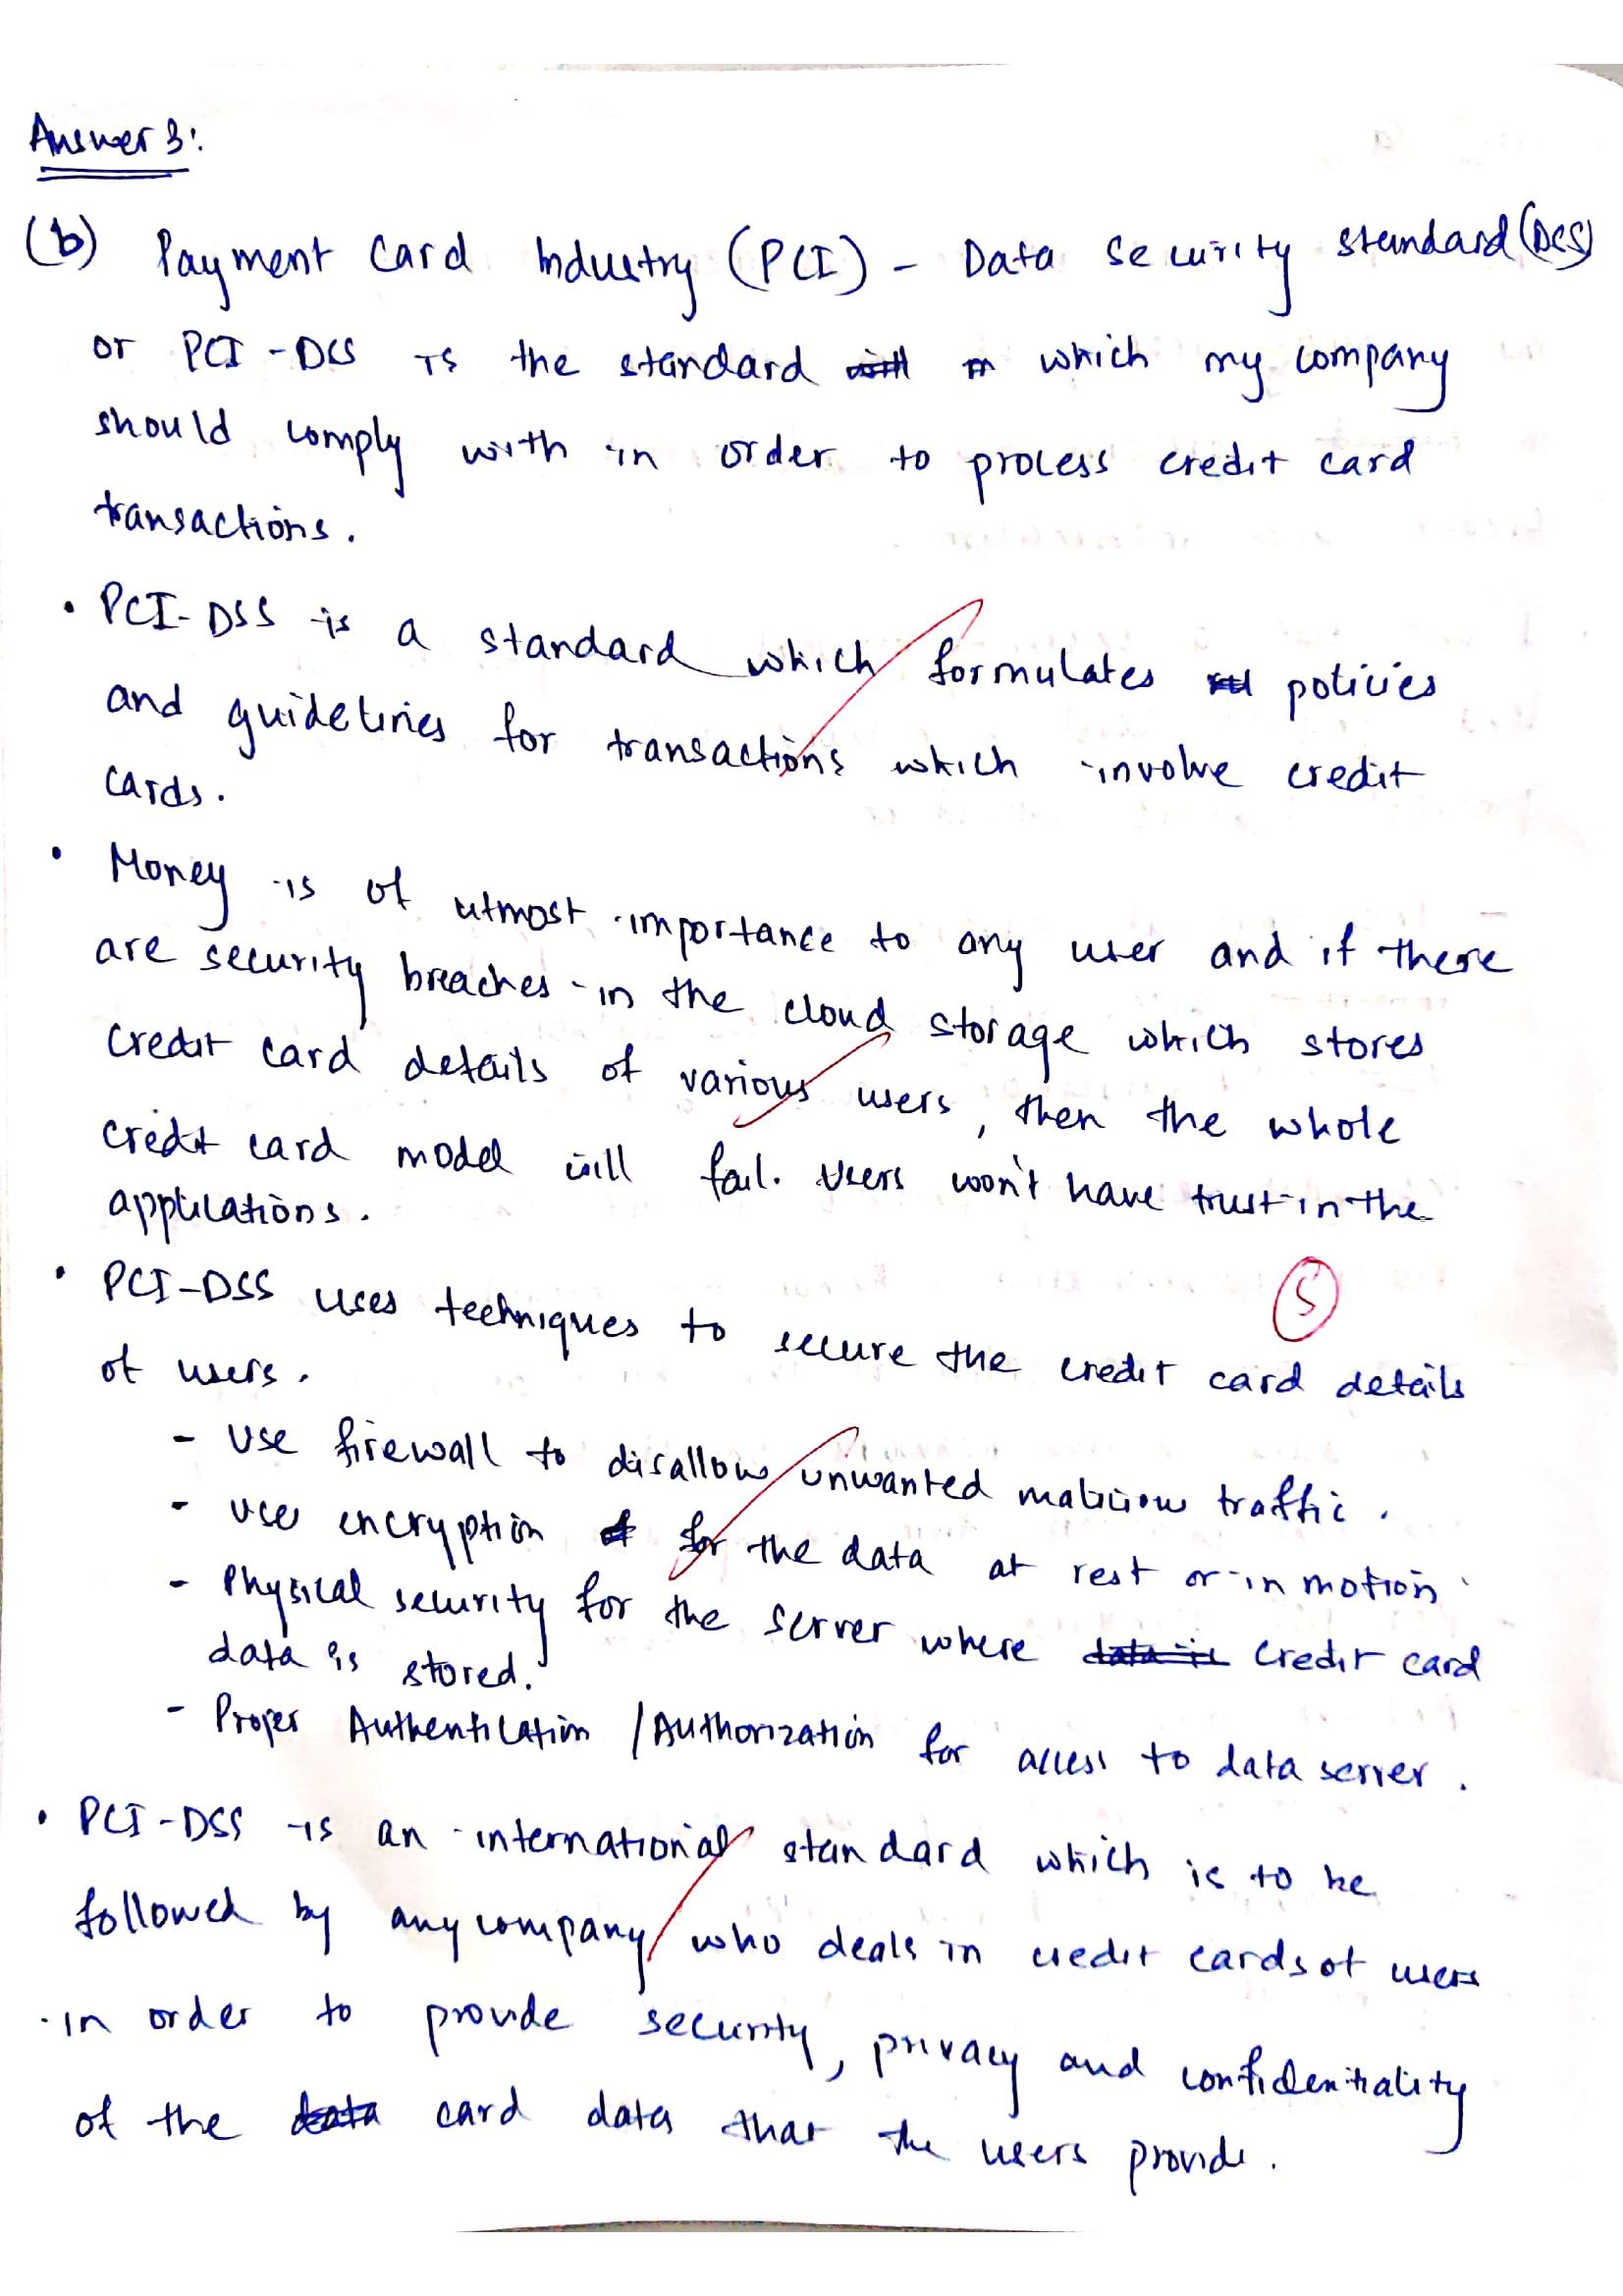 Answer 3:
(b) Payment Card Industry (PCI) - Data Security standard (DCS)
or PCI - DCS is the standard which my company
should comply with in order to process credit card
transactions.
• PCI-DSS is a standard which formulates policies
and guidelines for transactions which involve credit
cards.
• Money is of utmost importance to any user and if there
are security breaches in the cloud storage which stores
credit card details of various users, then the whole
credit card model will fail. Users won't have trust in the
applications.
• PCI-DSS uses techniques to secure the credit card details
of users.
5
- Use firewall to disallow unwanted malicious traffic.
- Use encryption for the data at rest or in motion.
- Physical security for the server where credit card
data is stored.
- Proper Authentication / Authorization for access to data server.
• PCI-DSS is an international standard which is to be
followed by any company who deals in credit cards of users
in order to provide security, privacy and confidentiality
of the card data that the users provide.